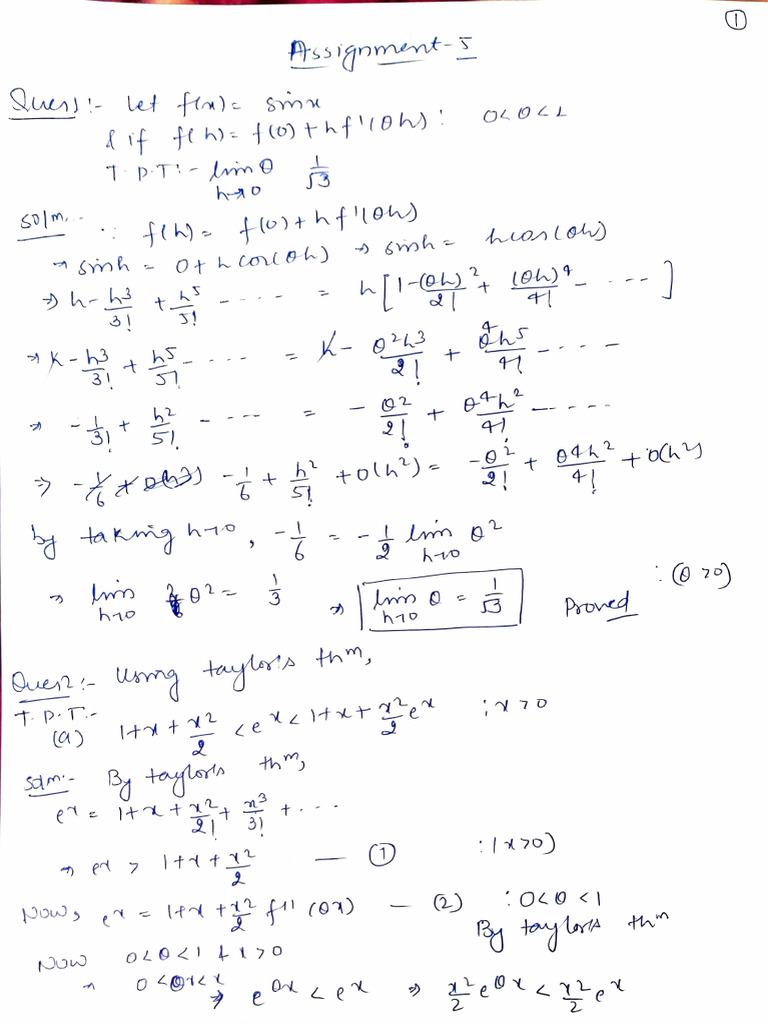 ①
Assignment-5
Ques1:- Let f(x) = sinx
& if f(h) = f(0) + hf'(θh) : 0<θ<1
T.P.T:- lim θ 1/√3
h→0
Solm.. ∵ f(h) = f(0) + hf'(θh)
⇒ sinh = 0 + h cos(θh) ⇒ sinh = hcos(θh)
⇒ h - h³/3! + h⁵/5! - ---- = h[1 - (θh)²/2! + (θh)⁴/4! - ---- ]
⇒ h - h³/3! + h⁵/5! - ---- = h - θ²h³/2! + θ⁴h⁵/4! - ----
⇒ -1/3! + h²/5! - ---- = -θ²/2! + θ⁴h²/4! - ----
⇒ -1/6 + h²/5! + O(h²) = -θ²/2! + θ⁴h²/4! + O(h²)
by taking h→0, -1/6 = -1/2 lim θ²
h→0
⇒ lim θ² = 1/3 ⇒ lim θ = 1/√3 Proved : (θ>0)
h→0 h→0
Ques2:- Using taylor's thm,
T.P.T:-
(a) 1+x+x²/2 < eˣ < 1+x+x²/2 eˣ ; x>0
Solm:- By taylor's thm,
eˣ = 1+x+x²/2! + x³/3! + ...
⇒ eˣ > 1+x+x²/2 — ① : (x>0)
Now, eˣ = 1+x+x²/2 f''(θx) — (2) : 0<θ<1
By taylor's thm
Now 0<θ<1 & x>0
⇒ 0<θx<x
⇒ e^θx < eˣ ⇒ x²/2 e^θx < x²/2 eˣ